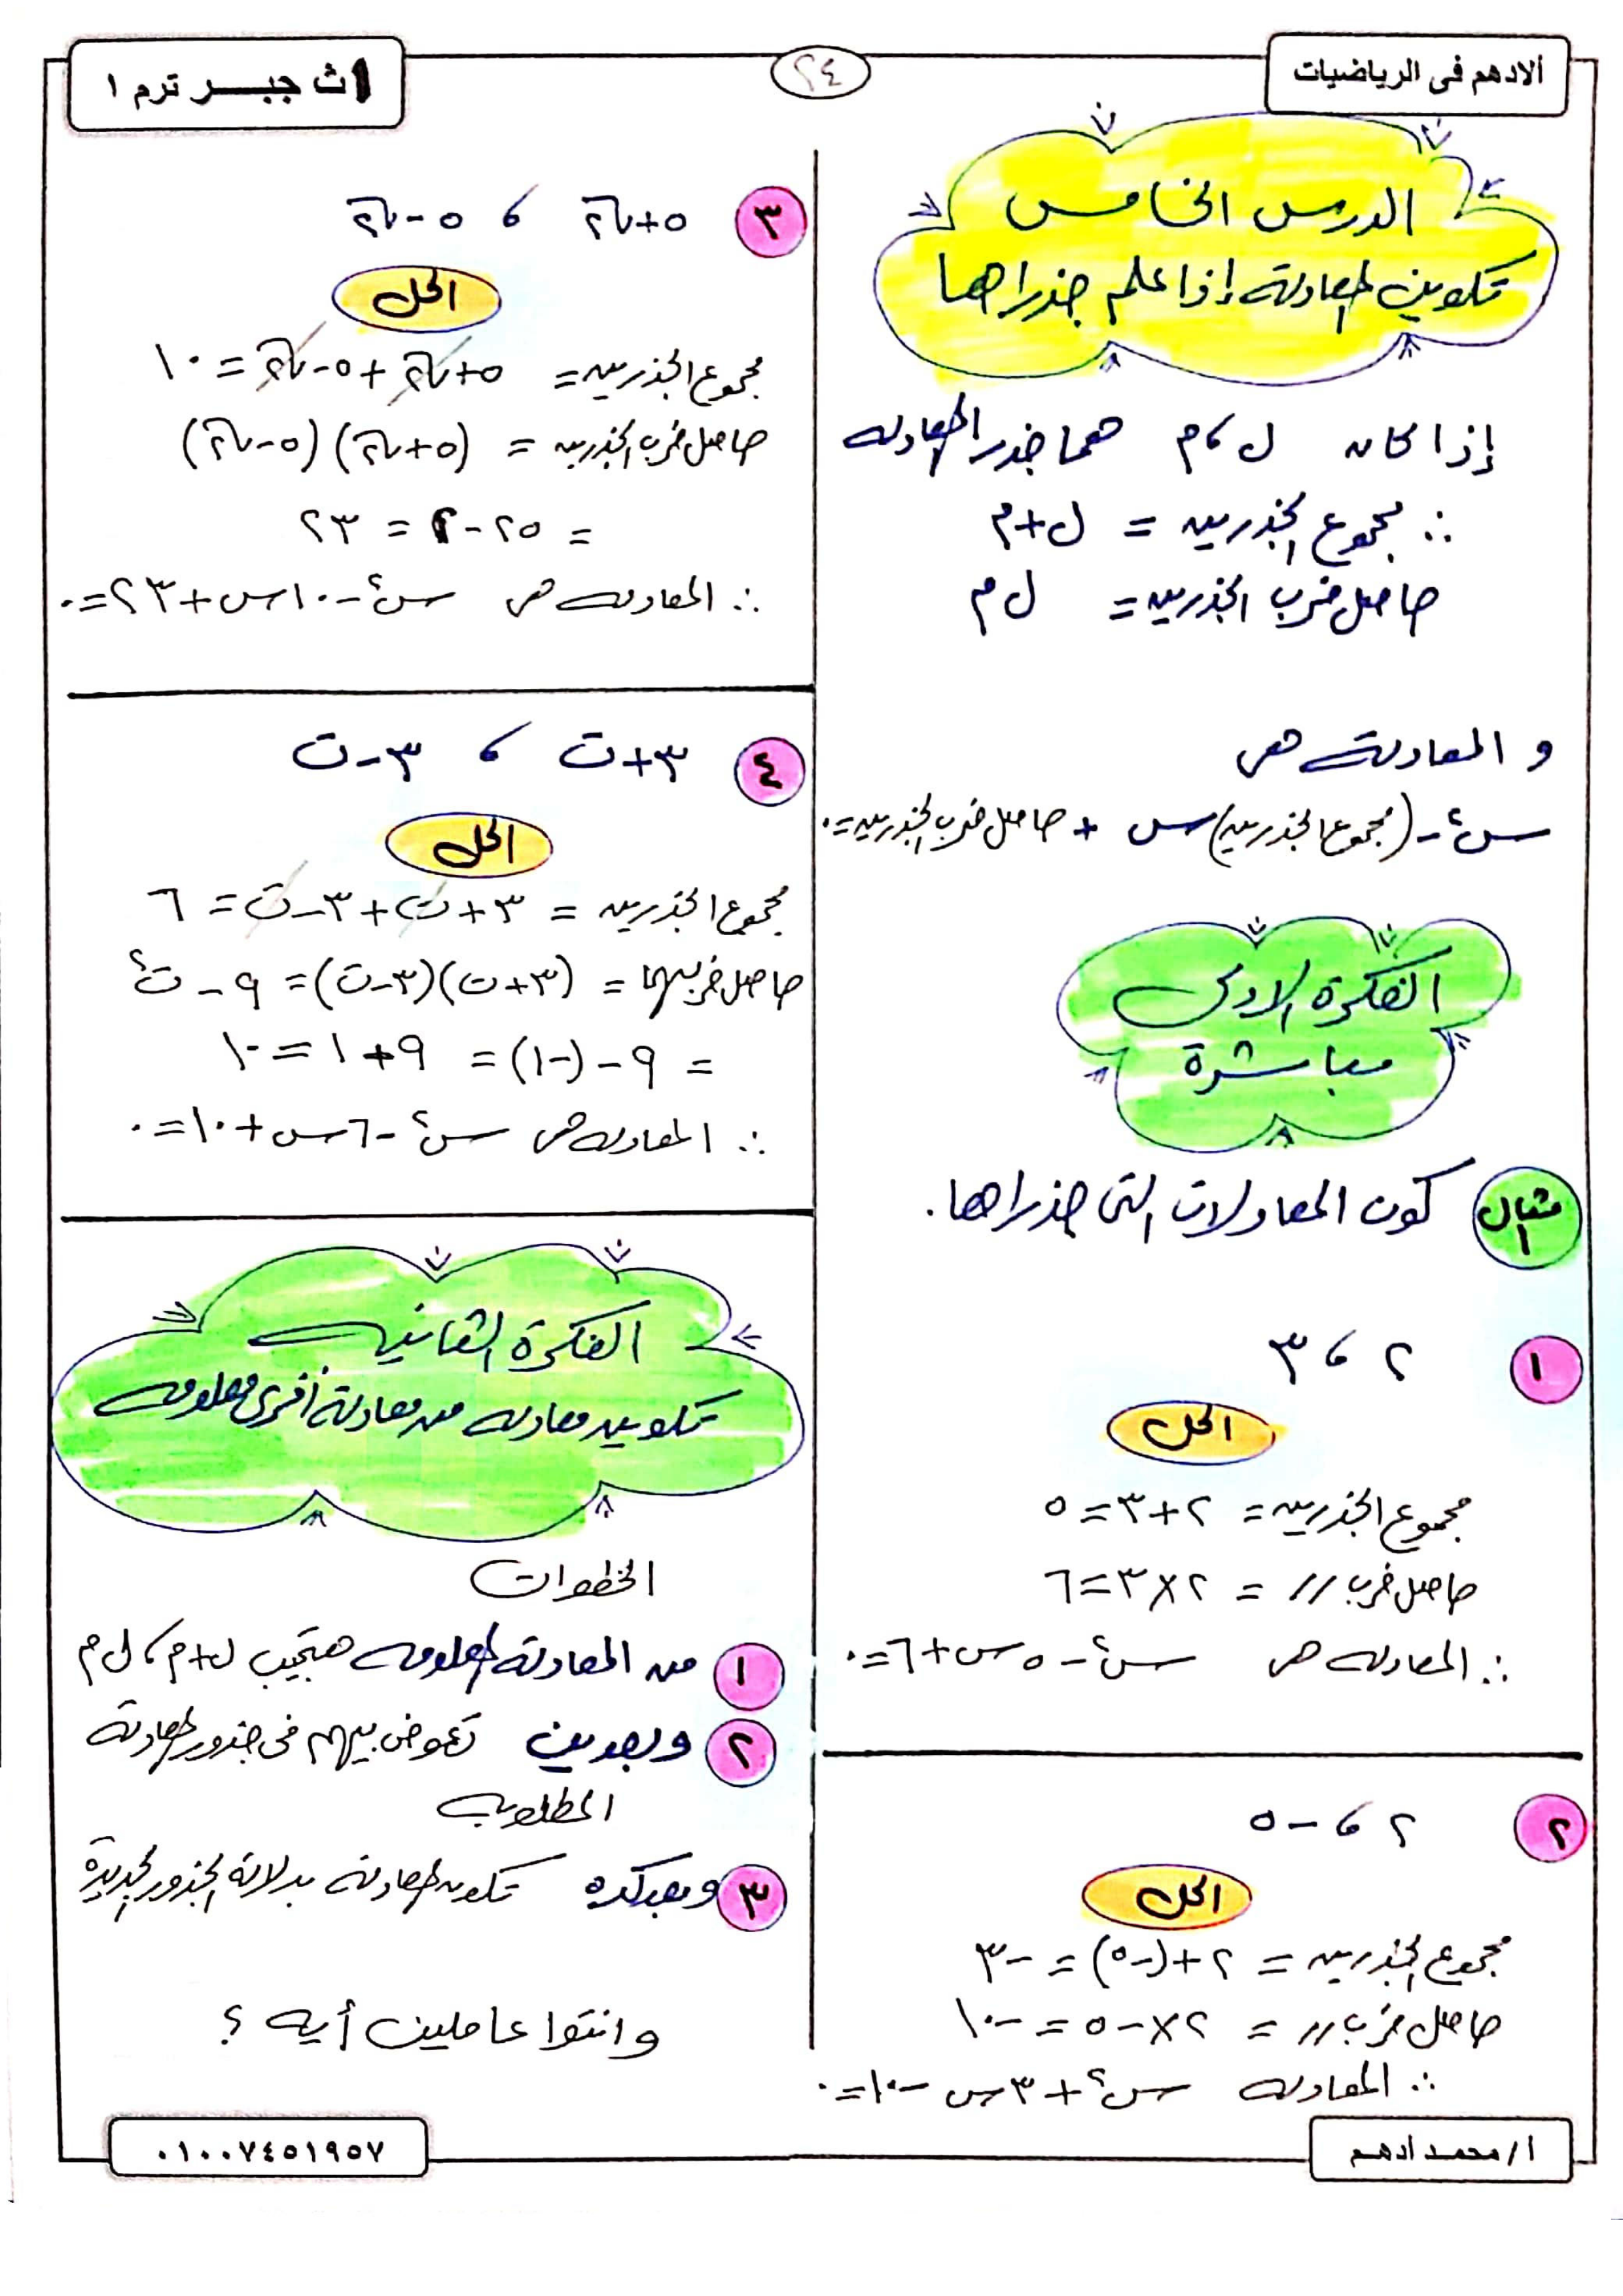 ألادهم فى الرياضيات
٢٤
١ث جبر ترم ١
الدرس الخامس
تكوين المعادلة إذا علم جذراها
إذا كان ل ، م هما جذرا المعادلة
∴ مجموع الجذرين = ل + م
حاصل ضرب الجذرين = ل م
و المعادلة هى
س٢ - (مجموع الجذرين) س + حاصل ضرب الجذرين = ٠
الفكرة الاولى
مباشرة
مثال ١ كون المعادلات التى جذراها .
١ ٢ ، ٣
الحل
مجموع الجذرين = ٢ + ٣ = ٥
حاصل ضرب // = ٢ × ٣ = ٦
∴ المعادلة هى س٢ - ٥س + ٦ = ٠
٢ ٢ ، -٥
الحل
مجموع الجذرين = ٢ + (-٥) = -٣
حاصل ضرب // = ٢ × -٥ = -١٠
∴ المعادلة س٢ + ٣س - ١٠ = ٠
٣ ٥ + √٢ ، ٥ - √٢
الحل
مجموع الجذرين = ٥ + √٢ + ٥ - √٢ = ١٠
حاصل ضرب الجذرين = (٥ + √٢) (٥ - √٢)
= ٢٥ - ٢ = ٢٣
∴ المعادلة هى س٢ - ١٠س + ٢٣ = ٠
٤ ٣ + ت ، ٣ - ت
الحل
مجموع الجذرين = ٣ + ت + ٣ - ت = ٦
حاصل ضربهما = (٣ + ت) (٣ - ت) = ٩ - ت٢
= ٩ - (-١) = ٩ + ١ = ١٠
∴ المعادلة هى س٢ - ٦س + ١٠ = ٠
الفكرة الثانية
تكوين معادلة من معادلة أخرى معلومة
الخطوات
١ من المعادلة المعلومة هتجيب ل + م ، ل م
٢ وبعدين تعوض بيهم فى جذور المعادلة
المطلوبة
٣ وبعد كده تكون المعادلة بدلالة الجذور الجديدة
وانتوا عاملين أيه ؟
أ/ محمد ادهم
٠١٠٠٧٤٥١٩٥٧